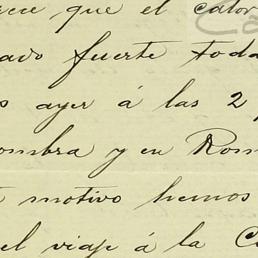 rece que el calor
ado fuerte toda
s ayer á las 2 p
ombra y en Rom
motivo hemos
el viaje á la C